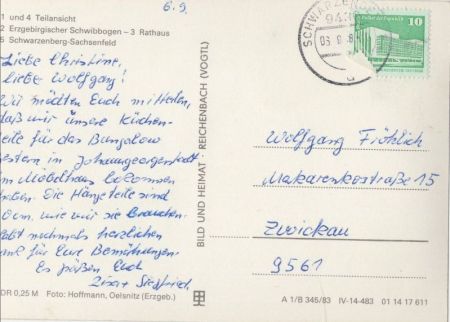 6.9.
1 und 4 Teilansicht
2 Erzgebirgischer Schwibbogen – 3 Rathaus
5 Schwarzenberg-Sachsenfeld
Liebe Christine,
liebe Wolfgang!
Wir möchten Euch mitteilen,
daß wir unsere Küchen-
teile für das Bungalow
gestern in Johanngeorgenstadt
im Möbelhaus bekommen
haben. Die Hängeteile sind
wie wir sie brauchen.
Habt nochmals herzlichen
Dank für Eure Bemühungen.
Es grüßen Euch
Siegfried
DR 0,25 M Foto: Hoffmann, Oelsnitz (Erzgeb.)
BILD UND HEIMAT · REICHENBACH (VOGTL)
SCHWARZENBERG
10
Wolfgang Fröhlich
Makarenkostraße 15
Zwickau
9561
A 1/B 345/83 IV-14-483 01 14 17 611